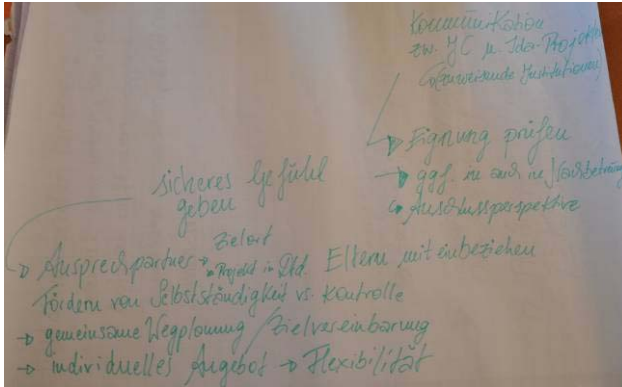 Kommunikation
zw. JC u. Ida-Projekt
(Zuweisende Institutionen)
→ Eignung prüfen
→ ggf. in auch in Nachbetreuung
↳ Anschlussperspektive
sicheres Gefühl
geben
→ Ansprechpartner → Zielort
→ Projekt in Dtd. Eltern mit einbeziehen
Fördern von Selbstständigkeit vs. Kontrolle
→ gemeinsame Wegplanung / Zielvereinbarung
→ individuelles Angebot → Flexibilität